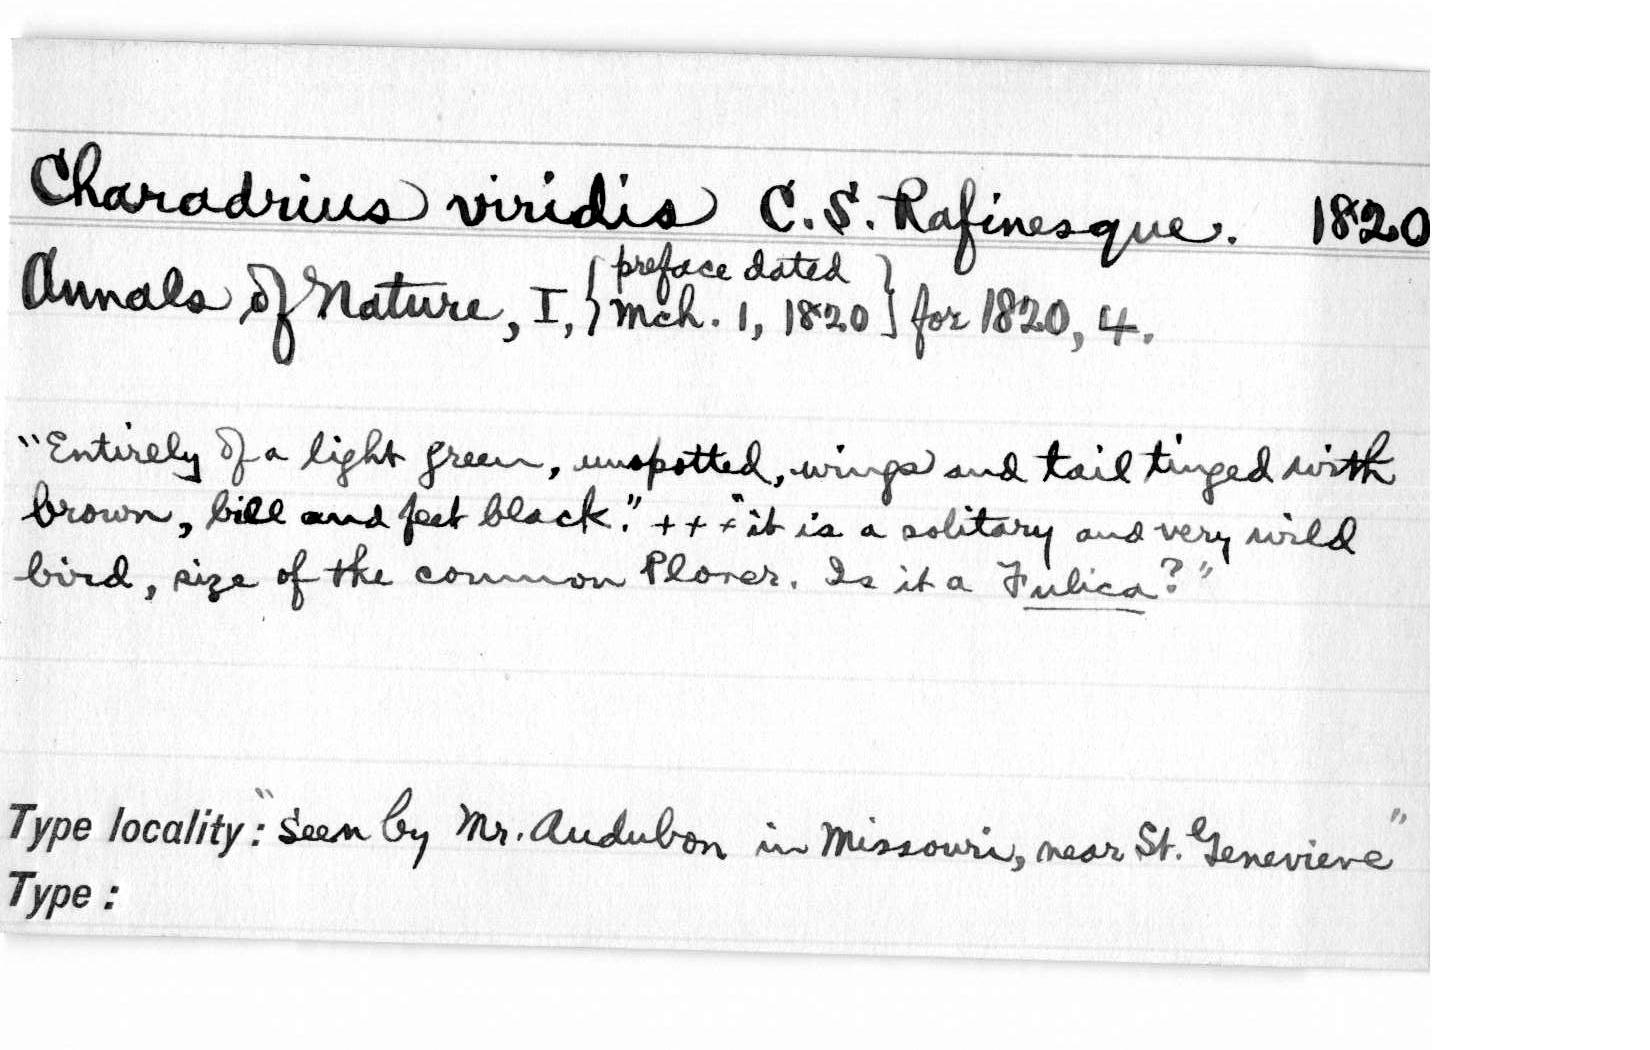 Charadrius viridis C. S. Rafinesque. 1820
Annals of Nature, I, {preface dated Mch. 1, 1820} for 1820, 4.
"Entirely of a light green, unspotted, wings and tail tinged with
brown, bill and feet black." + + + "it is a solitary and very wild
bird, size of the common Plover. Is it a Fulica?"
Type locality: "Seen by Mr. Audubon in Missouri, near St. Genevieve"
Type: